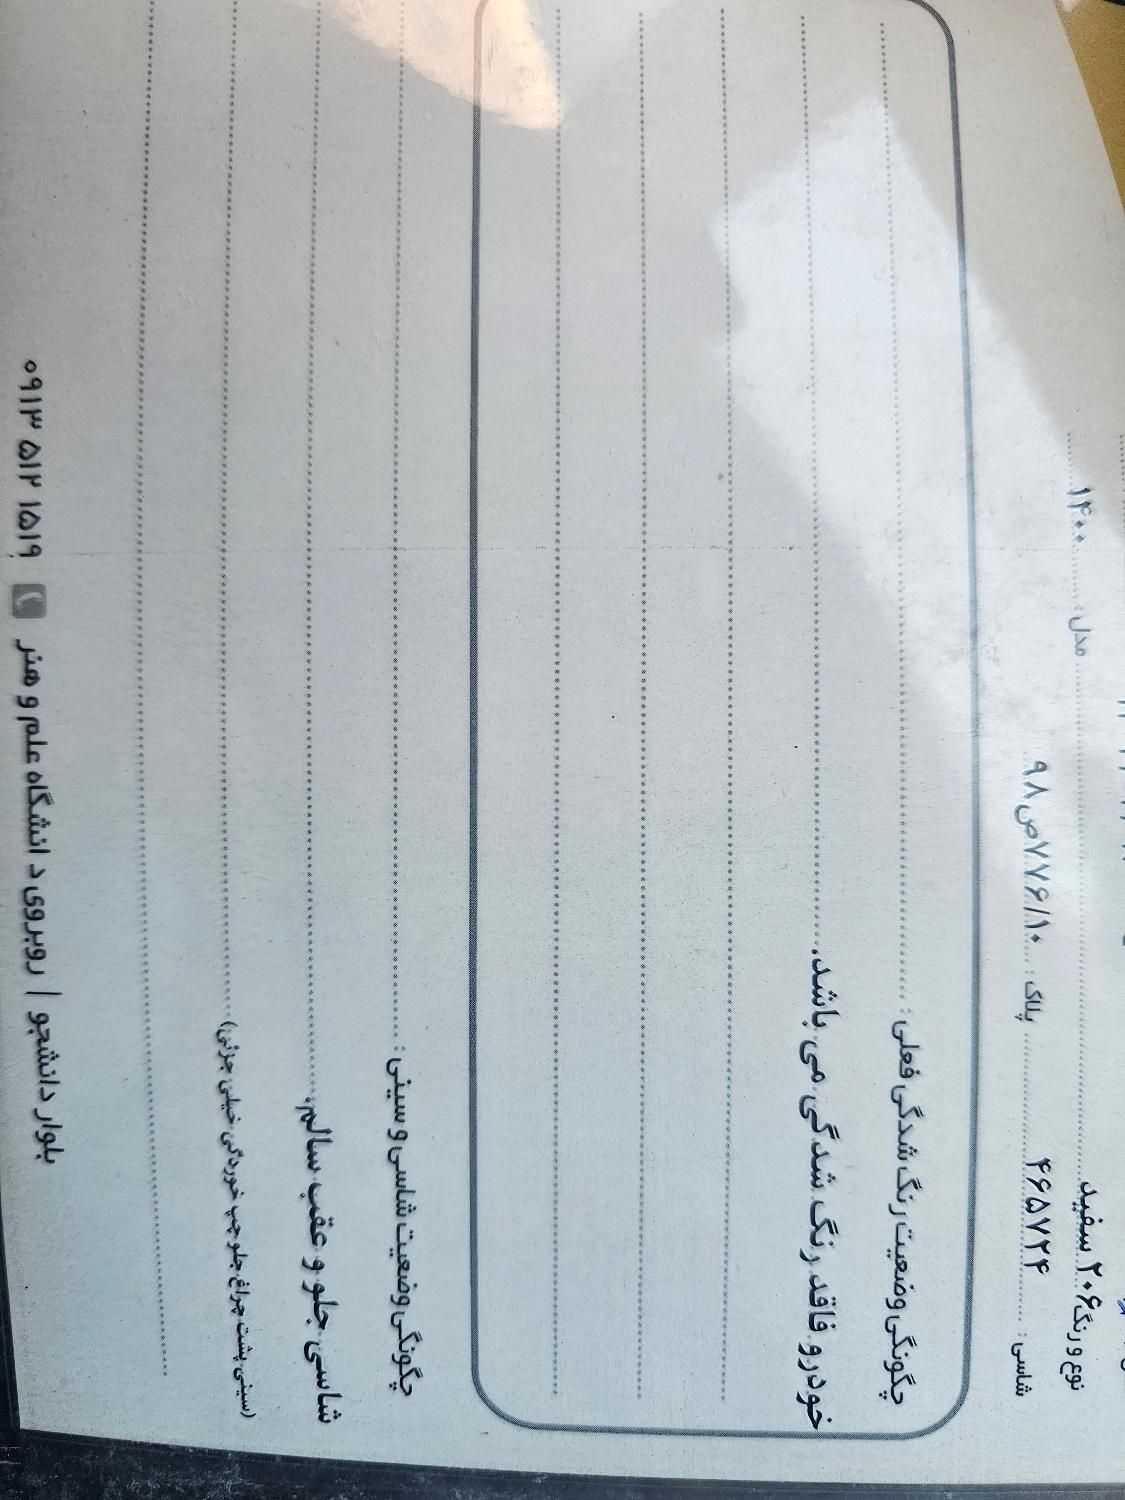 نوع و رنگ ۲۰۶ سفید مدل : ۱۴۰۰
شاسی : ۴۶۵۷۲۴ پلاک : ۹۸ص۷۷۶/۱۰
چگونگی وضعیت رنگ شدگی فعلی :
خودرو فاقد رنگ شدگی می باشد.
چگونگی وضعیت شاسی و سینی :
شاسی جلو و عقب سالم.
(سینی پشت چراغ جلو چپ خوردگی خیلی جزئی)
بلوار دانشجو | روبروی دانشگاه علم و هنر ۰۹۱۳ ۵۱۲ ۱۵۱۹